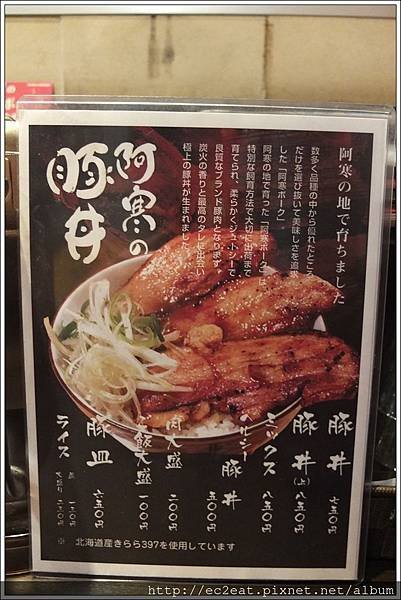 阿寒の
豚丼
阿寒の地で育ちました
数多く品種の中から優れたところ
だけを選び抜いて美味しさを追求
した「阿寒ポーク」。
阿寒の地で育った「阿寒ポーク」は、
特別な飼育方法で大切に出荷まで
育てられ、柔らかくジューシーで
良質なブランド豚肉となります。
炭火の香りと最高のタレに出会い
極上の豚丼が生まれました。
豚丼 七五〇円
豚丼(上) 八五〇円
ミックス 八五〇円
ヘルシー豚丼 五〇〇円
肉大盛 二〇〇円
ご飯大盛 一〇〇円
豚皿 六五〇円
ライス
※ 北海道産きらら397を使用しています
http://ec2eat.pixnet.net/album